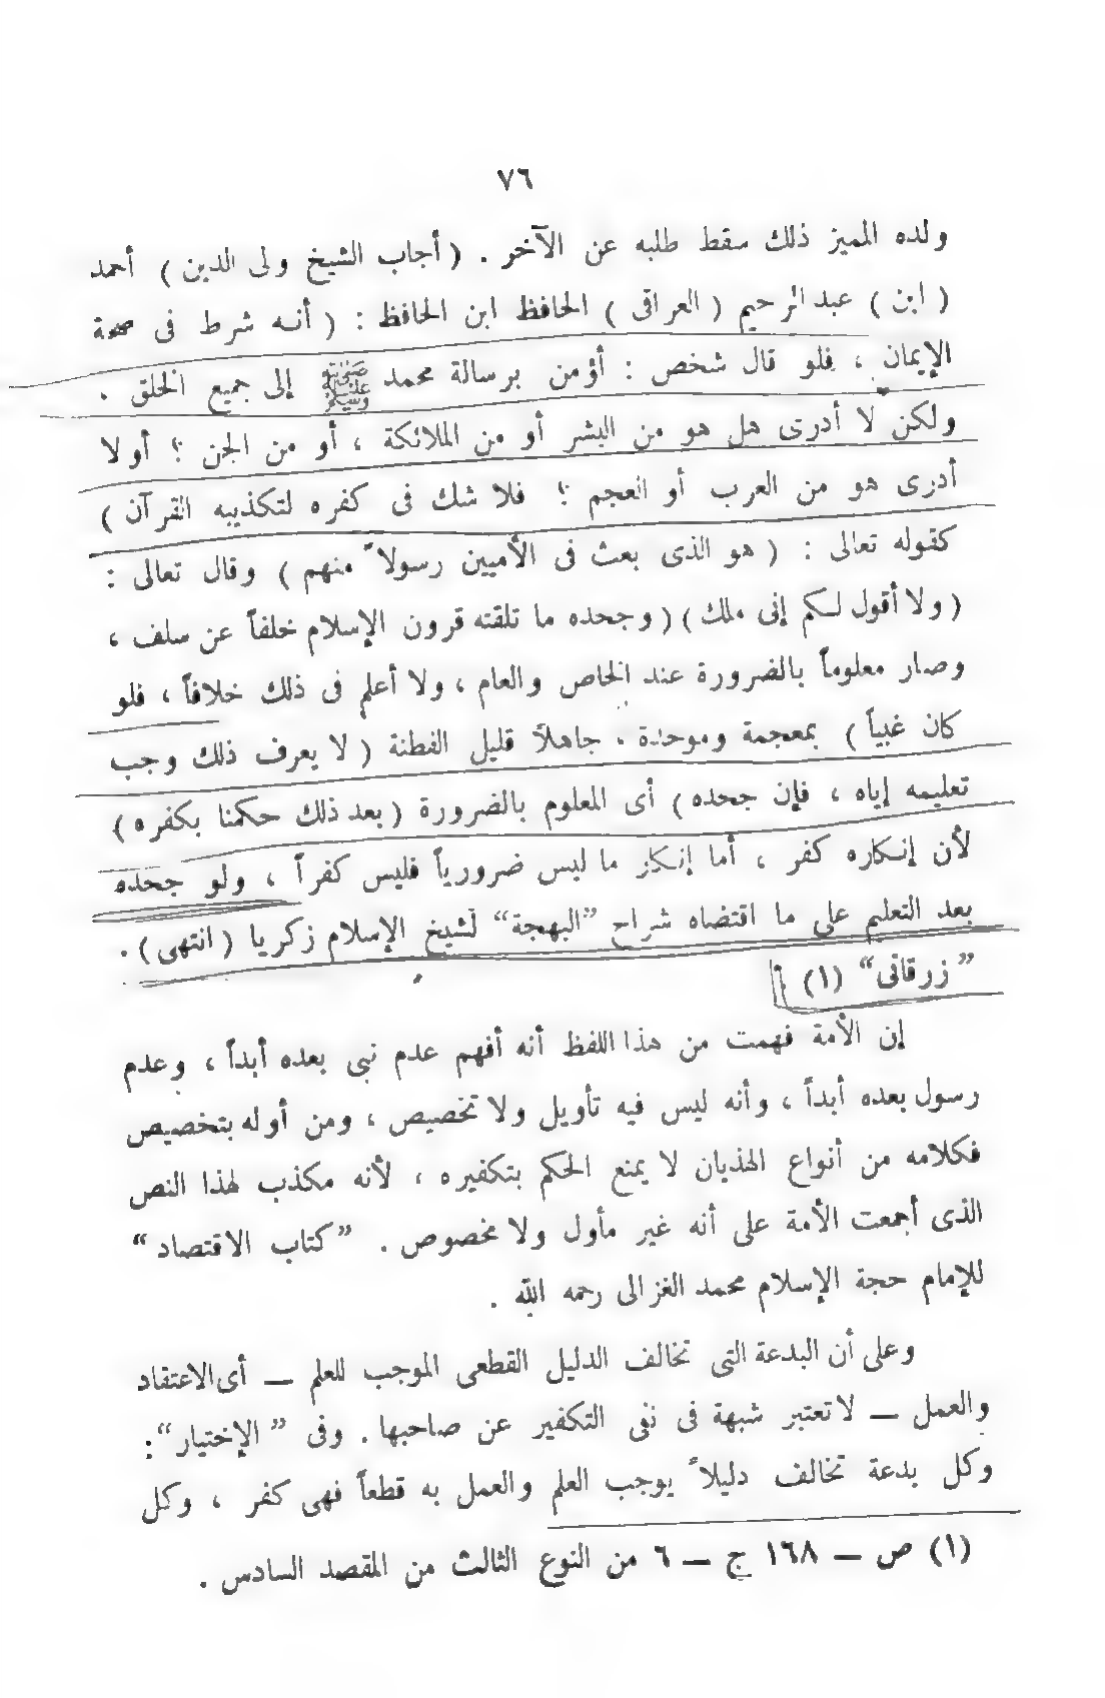 ٧٦
ولده المميز ذلك سقط طلبه عن الآخر . ( أجاب الشيخ ولى الدين ) أحمد
( ابن ) عبد الرحيم ( العراقى ) الحافظ ابن الحافظ : ( أنه شرط فى صحة
الإيمان ، فلو قال شخص : أؤمن برسالة محمد ﷺ إلى جميع الخلق .
ولكن لا أدرى هل هو من البشر أو من الملائكة ، أو من الجن ؟ أولا
أدرى هو من العرب أو العجم ؟ فلا شك فى كفره لتكذيبه القرآن )
كقوله تعالى : ( هو الذى بعث فى الأميين رسولاً منهم ) وقال تعالى :
( ولا أقول لكم إنى ملك ) ( وجحده ما تلقته قرون الإسلام خلفاً عن سلف ،
وصار معلوماً بالضرورة عند الخاص والعام ، ولا أعلم فى ذلك خلافاً ، فلو
كان غبياً ) بمعجمة وموحدة ، جاهلاً قليل الفطنة ( لا يعرف ذلك وجب
تعليمه إياه ، فإن جحده ) أى المعلوم بالضرورة ( بعد ذلك حكمنا بكفره )
لأن إنكاره كفر ، أما إنكار ما ليس ضرورياً فليس كفراً ، ولو جحده
بعد التعليم على ما اقتضاه شراح “البهجة” لشيخ الإسلام زكريا ( انتهى ) .
“ زرقانى ” (١) .
إن الأمة فهمت من هذا اللفظ أنه أفهم عدم نبى بعده أبداً ، وعدم
رسول بعده أبداً ، وأنه ليس فيه تأويل ولا تخصيص ، ومن أوله بتخصيص
فكلامه من أنواع الهذيان لا يمنع الحكم بتكفيره ، لأنه مكذب لهذا النص
الذى أجمعت الأمة على أنه غير مأول ولا مخصوص . “ كتاب الاقتصاد ”
للإمام حجة الإسلام محمد الغزالى رحمه الله .
وعلى أن البدعة التى تخالف الدليل القطعى الموجب للعلم ــ أى الاعتقاد
والعمل ــ لا تعتبر شبهة فى نفى التكفير عن صاحبها . وفى “ الإختيار ” :
وكل بدعة تخالف دليلاً يوجب العلم والعمل به قطعاً فهى كفر ، وكل
(١) ص ــ ١٦٨ ج ــ ٦ من النوع الثالث من المقصد السادس .